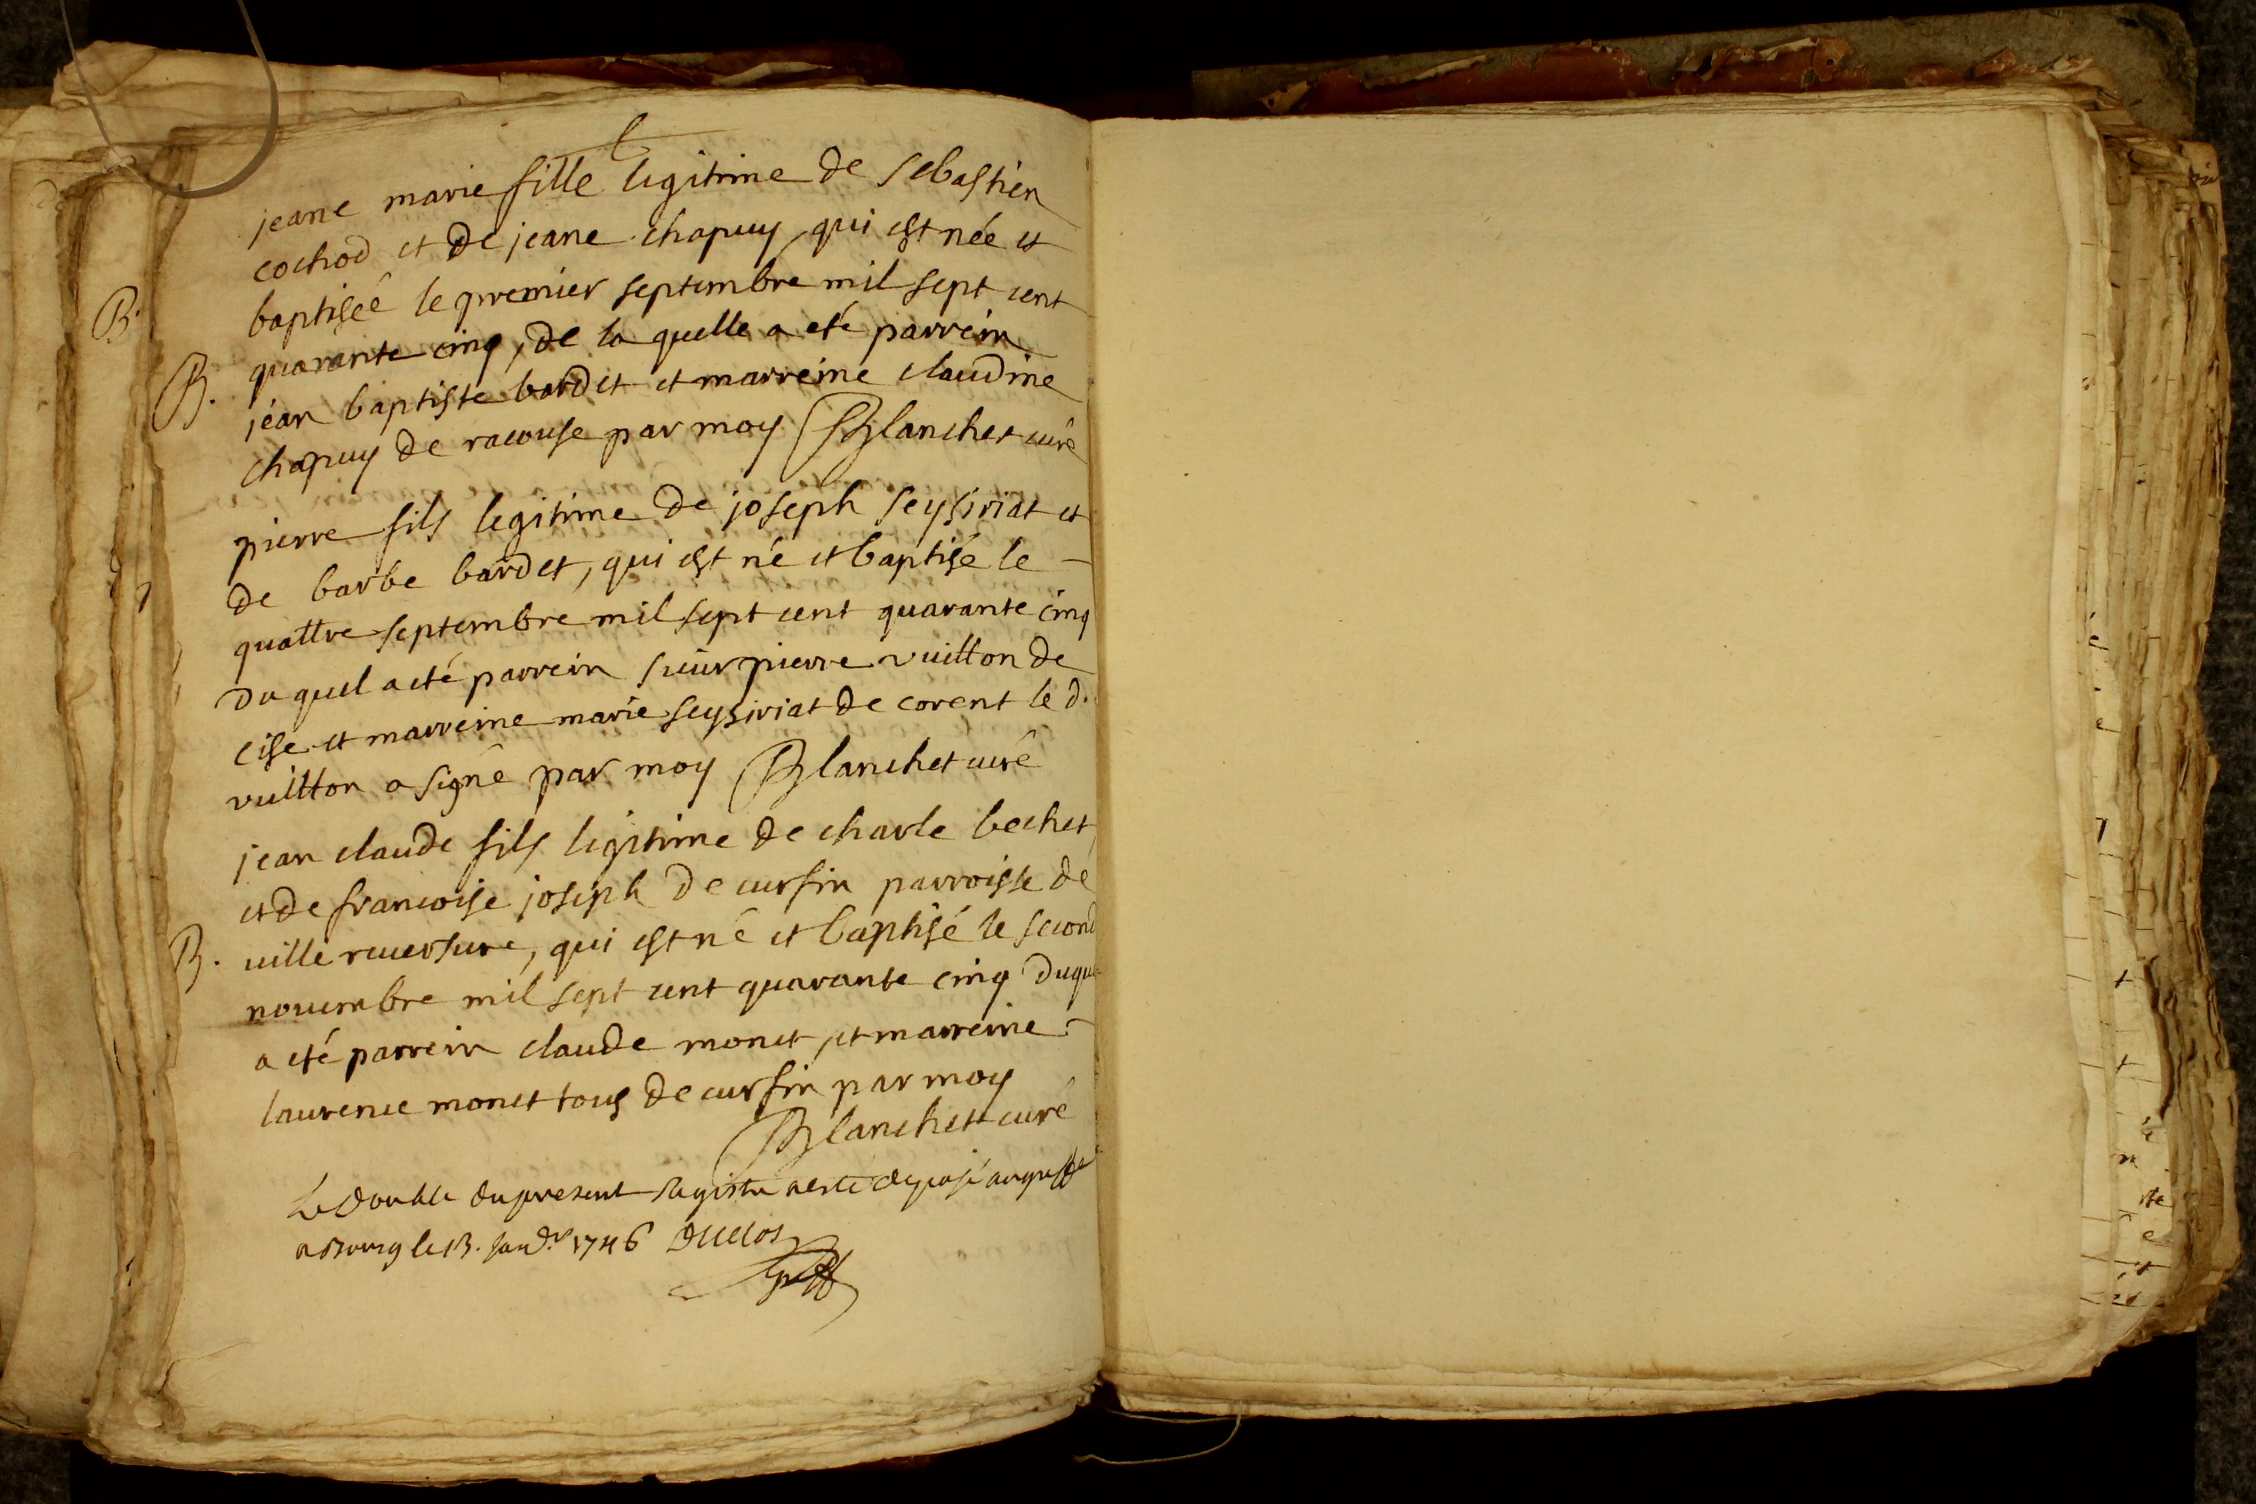 jeane marie fille legitime de sebastien
cochod et de jeane chapuy, qui est née et
baptiseé le premier septembre mil sept cent
B. quarante cinq, de la quelle a eté parrein
jean baptiste bardet et marreine claudine
chapuy de racouse par moy Blanchet curé
pierre fils legitime de joseph seysiriat et
de barbe bardet, qui est né et baptisé le
quattre septembre mil sept cent quarante cinq
du quel a eté parrein sieur pierre vuitton de
cise et marreine marie seysiriat de corent le d.
vuittton a signé par moy Blanchet curé
jean claude fils legitime de charle bechet
et de francoise joseph de cursin parroisse de
B. ville reuersure, qui est né et baptisé le second
nouembre mil sept cent quarante cinq duquel
a eté parrein claude monet, et marreine
laurence monet tous de cursin par moy
Blanchet curé
Le double du present Registre a esté deposé au greffe
a Bourg le 13. Janv.r 1746 Duclos
greff
B.